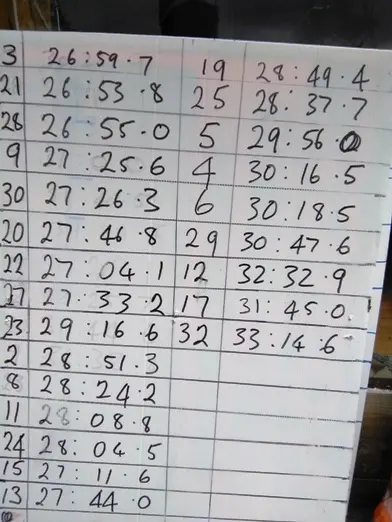 3 26:59.7 19 28:49.4
21 26:53.8 25 28:37.7
28 26:55.0 5 29:56.0
9 27:25.6 4 30:16.5
30 27:26.3 6 30:18.5
20 27:46.8 29 30:47.6
22 27:04.1 12 32:32.9
27 27:33.2 17 31:45.0
23 29:16.6 32 33:14.6
2 28:51.3
8 28:24.2
11 28:08.8
24 28:04.5
15 27:11.6
13 27:44.0